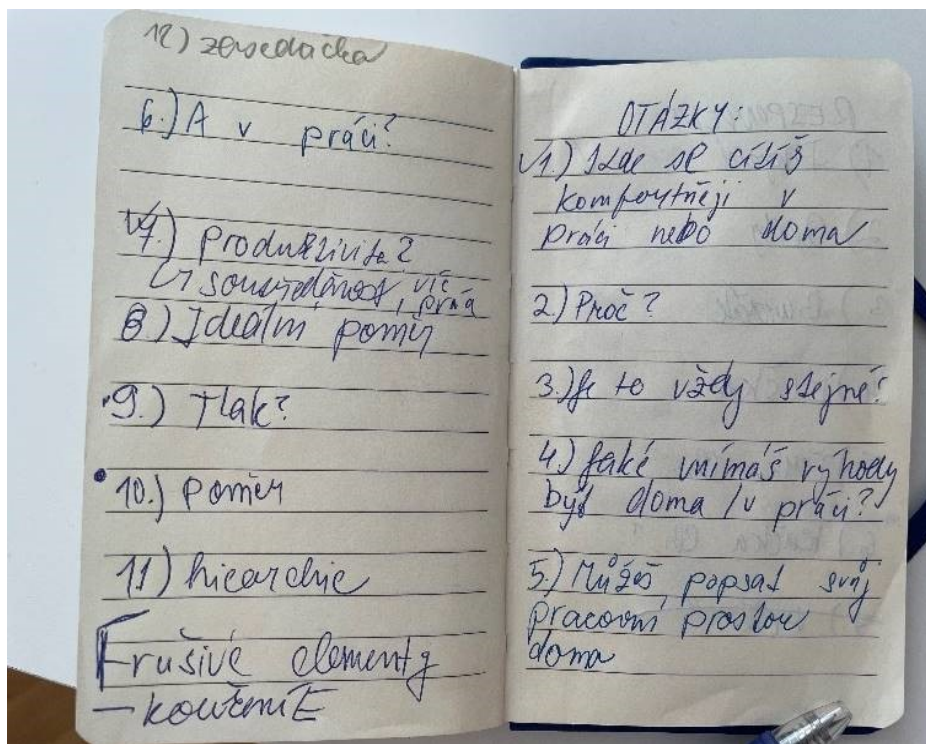 12) zasedačka
6.) A v práci?
7.) Produktivita?
↳ soustředěnost, víc práce
8.) Ideální poměr
9.) Tlak?
10.) poměr
11) hiearchie
rušivé elementy
– kouření
OTÁZKY:
1.) Kde se cítíš
komfortněji v
práci nebo doma
2.) Proč?
3.) Je to vždy stejné?
4.) Jaké vnímáš výhody
být doma / v práci?
5.) Můžeš popsat svůj
pracovní prostor
doma